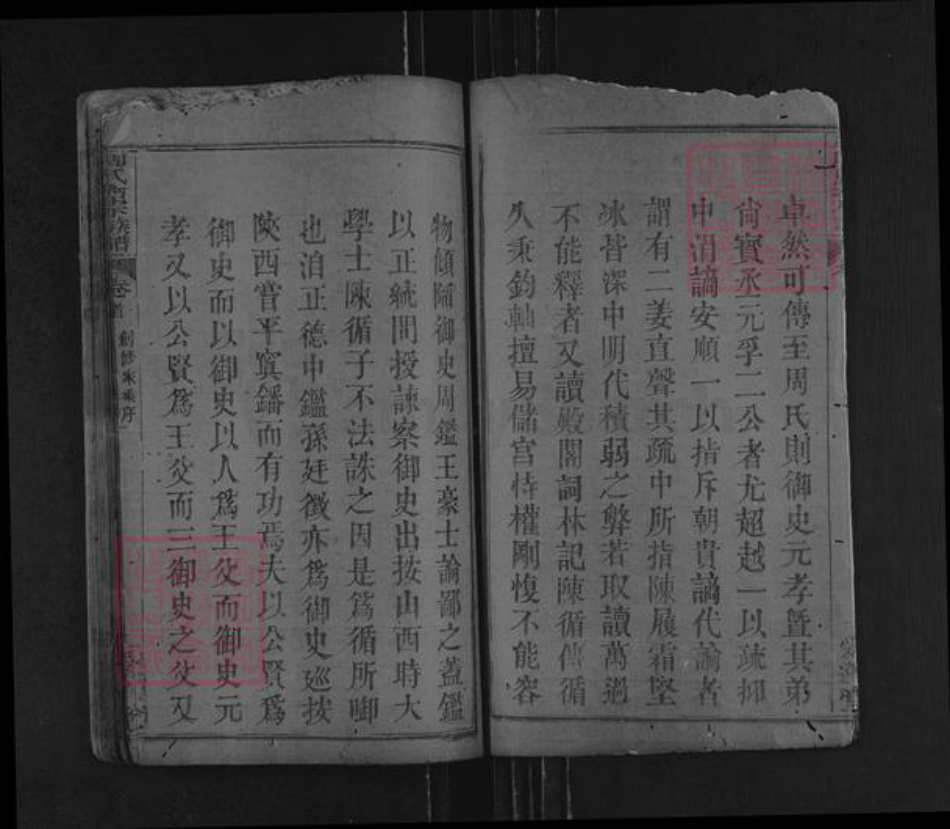 卓然可傳至周氏則御史元孝暨其弟
尚寶丞元孚二公者尤超越一以疏抑
中涓謫安順一以指斥朝貴謫代論者
謂有二姜直聲其疏中所指陳履霜堅
冰皆深中明代積弱之弊若取讀萬過
不能釋者又讀殿閣詞林記陳循傳循
久秉鈞軸擅易儲宮恃權剛愎不能容
物傾陷御史周鑑王豪士論鄙之蓋鑑
以正統間授諫察御史出按山西時大
學士陳循子不法誅之因是為循所啣
也洎正德中鑑孫廷徵亦為御史廵按
陝西嘗平寘鐇而有功焉夫以公賢為
御史而以御史以人為王父而御史元
孝又以公賢為王父而三御史之父又
氏 族譜 卷首 創修家乘序